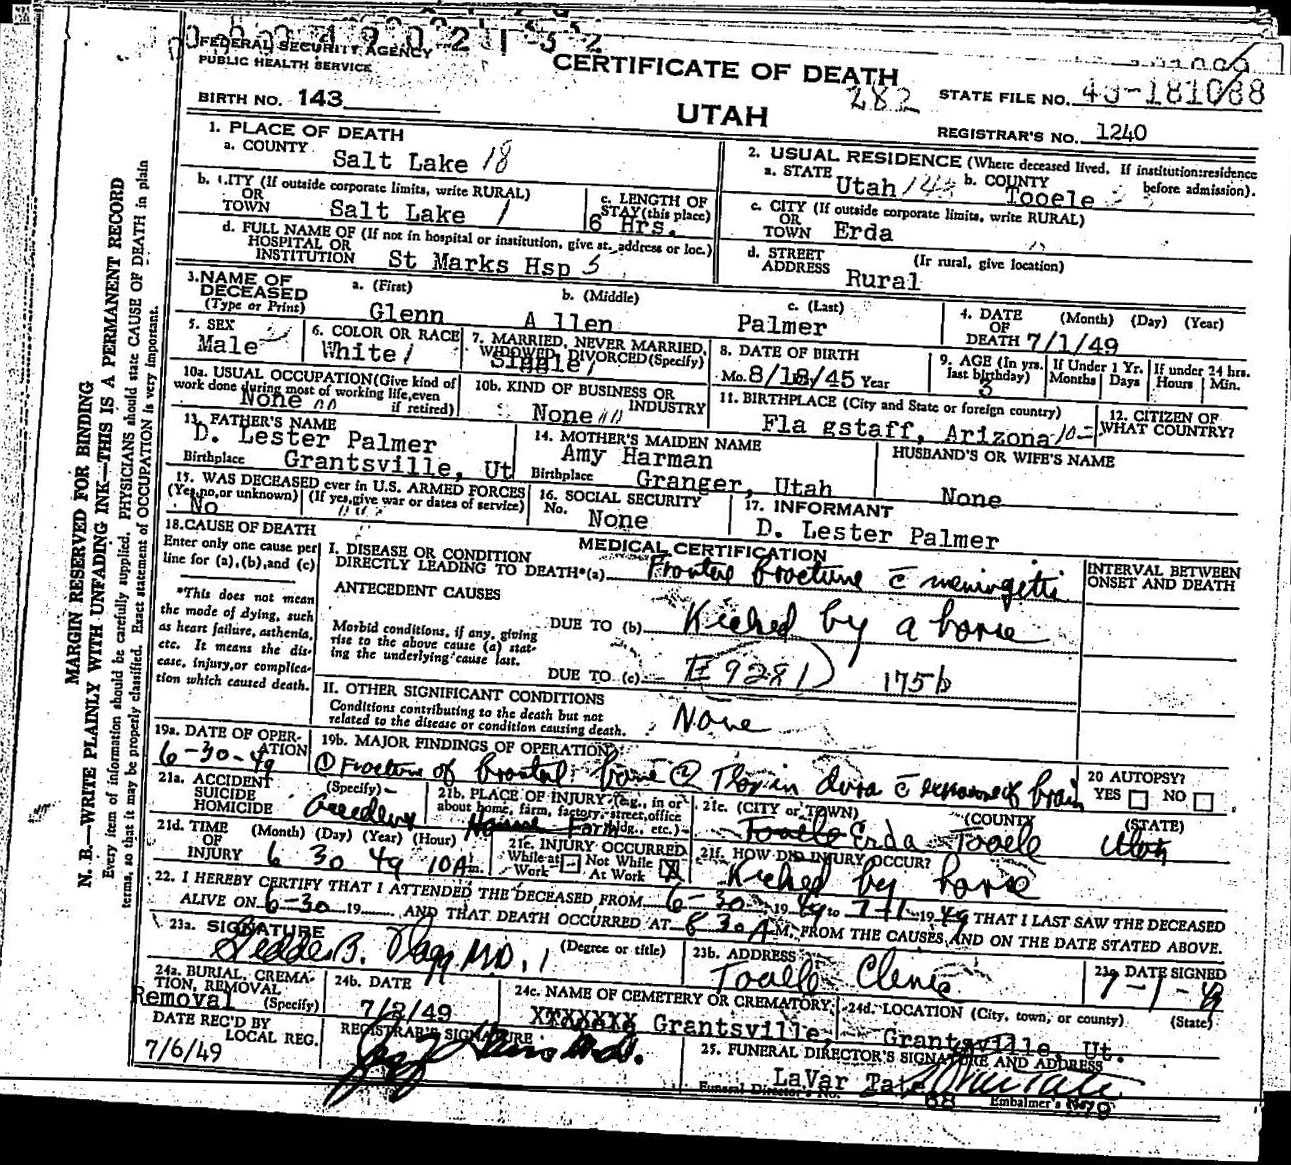 0 0 0 4 9 0 2 1 3 2
FEDERAL SECURITY AGENCY
PUBLIC HEALTH SERVICE
CERTIFICATE OF DEATH
282
STATE FILE NO. 49-181088
BIRTH NO. 143
UTAH
REGISTRAR'S NO. 1240
1. PLACE OF DEATH
a. COUNTY Salt Lake 18
2. USUAL RESIDENCE (Where deceased lived. If institution:residence before admission).
a. STATE Utah b. COUNTY Tooele
b. CITY (If outside corporate limits, write RURAL) OR TOWN Salt Lake 1
c. LENGTH OF STAY (this place) 6 Hrs.
c. CITY (If outside corporate limits, write RURAL) OR TOWN Erda
d. FULL NAME OF (If not in hospital or institution, give st. address or loc.) HOSPITAL OR INSTITUTION St Marks Hsp 5
d. STREET ADDRESS (If rural, give location) Rural
3. NAME OF DECEASED (Type or Print)
a. (First) Glenn b. (Middle) A llen c. (Last) Palmer
4. DATE OF DEATH (Month) (Day) (Year) 7/1/49
5. SEX Male
6. COLOR OR RACE White 1
7. MARRIED, NEVER MARRIED, WIDOWED, DIVORCED (Specify) Single 1
8. DATE OF BIRTH Mo. 8/18/45 Year
9. AGE (In yrs. last birthday) 3
If Under 1 Yr. Months Days
If under 24 hrs. Hours Min.
10a. USUAL OCCUPATION (Give kind of work done during most of working life, even if retired) None
10b. KIND OF BUSINESS OR INDUSTRY None
11. BIRTHPLACE (City and State or foreign country) Fla gstaff, Arizona
12. CITIZEN OF WHAT COUNTRY?
13. FATHER'S NAME D. Lester Palmer
Birthplace Grantsville, Ut
14. MOTHER'S MAIDEN NAME Amy Harman
Birthplace Granger, Utah
HUSBAND'S OR WIFE'S NAME None
15. WAS DECEASED ever in U.S. ARMED FORCES (Yes,no,or unknown) (If yes,give war or dates of service) No
16. SOCIAL SECURITY No. None
17. INFORMANT D. Lester Palmer
18. CAUSE OF DEATH
Enter only one cause per line for (a),(b),and (c)
*This does not mean the mode of dying, such as heart failure, asthenia, etc. It means the disease, injury,or complication which caused death.
MEDICAL CERTIFICATION
INTERVAL BETWEEN ONSET AND DEATH
I. DISEASE OR CONDITION DIRECTLY LEADING TO DEATH*(a) Frontal fracture c meningitis
ANTECEDENT CAUSES
Morbid conditions, if any, giving rise to the above cause (a) stating the underlying cause last.
DUE TO (b) Kicked by a horse
DUE TO (c) E 928 1 175b
II. OTHER SIGNIFICANT CONDITIONS
Conditions contributing to the death but not related to the disease or condition causing death. None
19a. DATE OF OPERATION 6-30-49
19b. MAJOR FINDINGS OF OPERATION ① Fracture of frontal bone ② in dura c of brain
20 AUTOPSY? YES NO
21a. ACCIDENT SUICIDE HOMICIDE (Specify) Accident
21b. PLACE OF INJURY (e.g., in or about home, farm, factory, street, office bldg., etc.) Farm
21c. (CITY or TOWN) (COUNTY) (STATE) Tooele Erda Tooele Utah
21d. TIME OF INJURY (Month) (Day) (Year) (Hour) 6 30 49 10 A m.
21e. INJURY OCCURRED While at Work Not While At Work X
21f. HOW DID INJURY OCCUR? Kicked by horse
22. I HEREBY CERTIFY THAT I ATTENDED THE DECEASED FROM 6-30 1949 to 7-1 1949 THAT I LAST SAW THE DECEASED
ALIVE ON 6-30 19 AND THAT DEATH OCCURRED AT 8 30 A M. FROM THE CAUSES AND ON THE DATE STATED ABOVE.
23a. SIGNATURE (Degree or title) MD.
23b. ADDRESS Tooele Clinic
23c DATE SIGNED 7-1-49
24a. BURIAL, CREMATION, REMOVAL (Specify) Removal
24b. DATE 7/2/49
24c. NAME OF CEMETERY OR CREMATORY Grantsville,
24d. LOCATION (City, town, or county) (State) Grantsville, Ut.
DATE REC'D BY LOCAL REG. 7/6/49
REGISTRAR'S SIGNATURE
25. FUNERAL DIRECTOR'S SIGNATURE AND ADDRESS
LaVar Tate
Funeral Director's No. 68 Embalmer's No. 79
MARGIN RESERVED FOR BINDING
N. B.—WRITE PLAINLY WITH UNFADING INK—THIS IS A PERMANENT RECORD
Every item of information should be carefully supplied. PHYSICIANS should state CAUSE OF DEATH in plain
terms, so that it may be properly classified. Exact statement of OCCUPATION is very important.